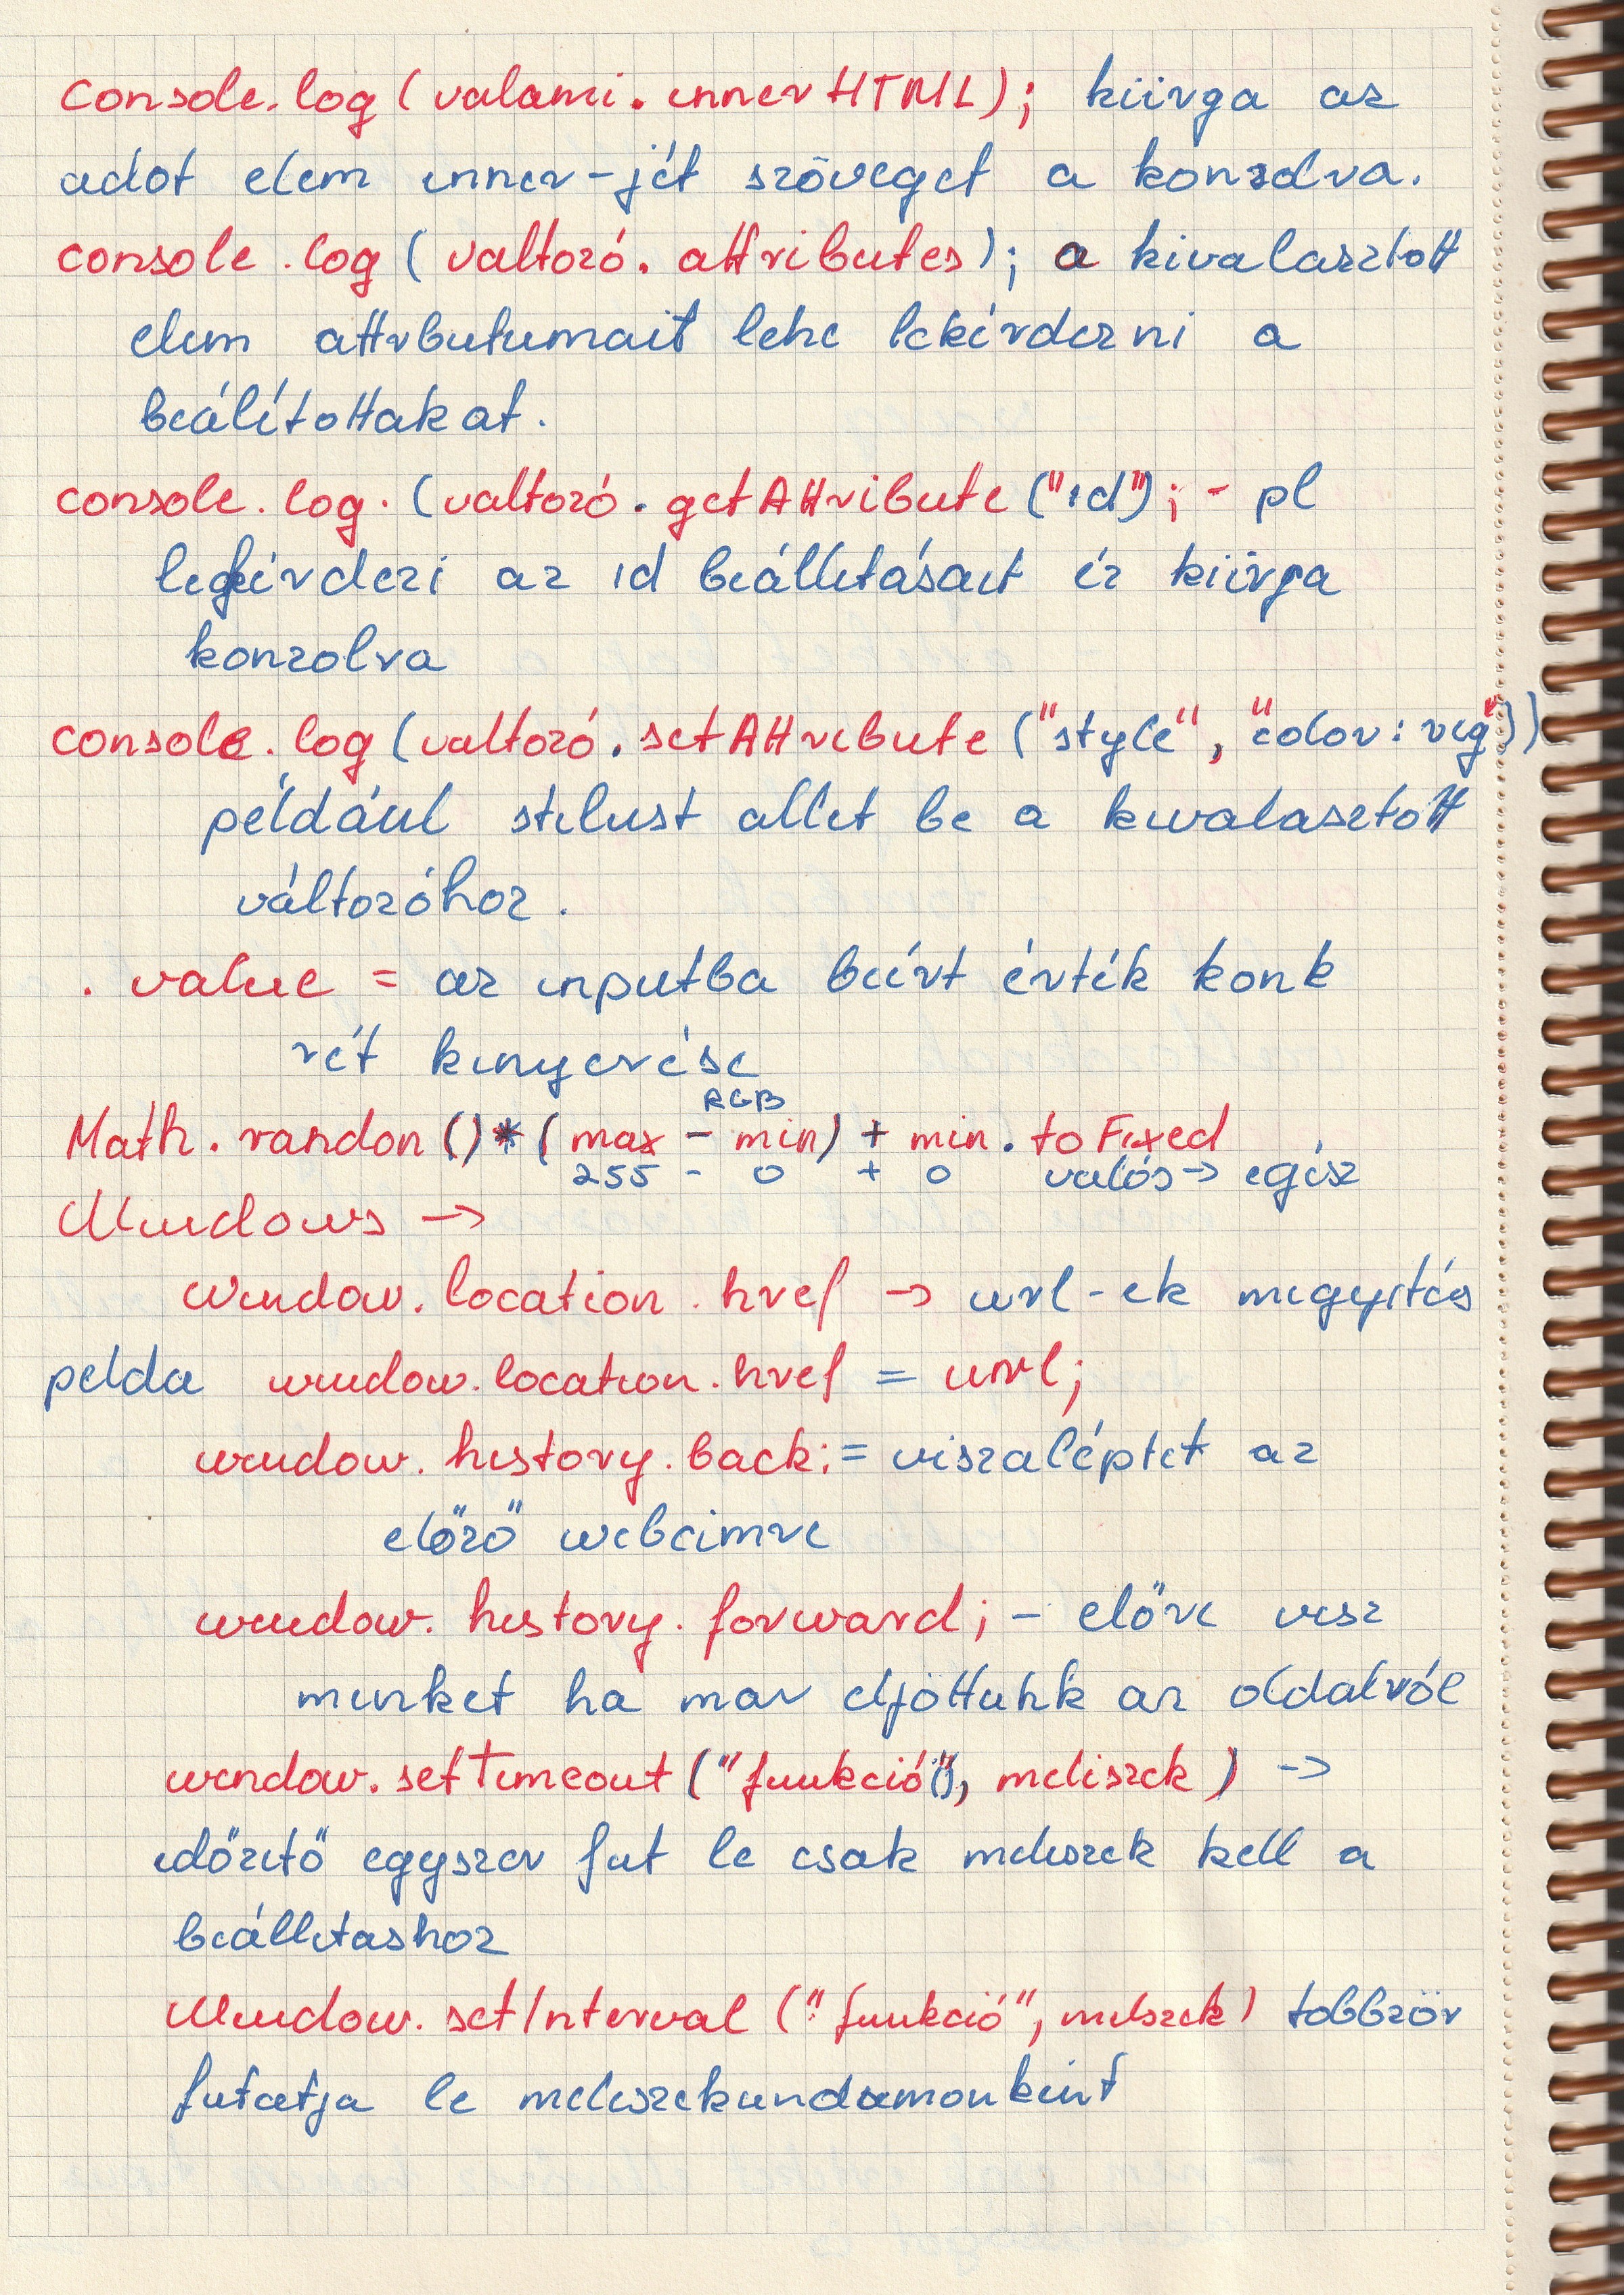 console.log (valami.innerHTML); kiírga az
adot elem inner-jét szöveget a konzolra.
console.log (valtozó.attributes); a kivalasztott
elem attrbutumait lehe lekérdezni a
beálítottakat.
console.log. (valtozó.getAttribute ("id"); - pl
legkérdezi az id beállitásait és kiírga
konzolra
console.log (valtozó.setAttribute ("style", "color: reg"))
például stilust allit be a kivalasztott
változóhoz.
.value = az inputba beírt érték konk
rét kinyerése
RGB
Math.randon ()*(max - min) + min.toFixed
255 - 0 + 0 valós → egész
Windows →
window.location.href → url-ek megyitás
pelda window.location.href = url;
window.history.back; = viszaléptet az
előző webcimre
window.history.forward; - előre visz
minket ha mar eljöttunk az oldalról
window.setTimeout ("funkció"(), meliszek) →
időzitő egyszer fut le csak meliszek kell a
beállitashoz
Window.setInterval ("funkció", meliszek) tobbzör
futatja le meliszekundumonként